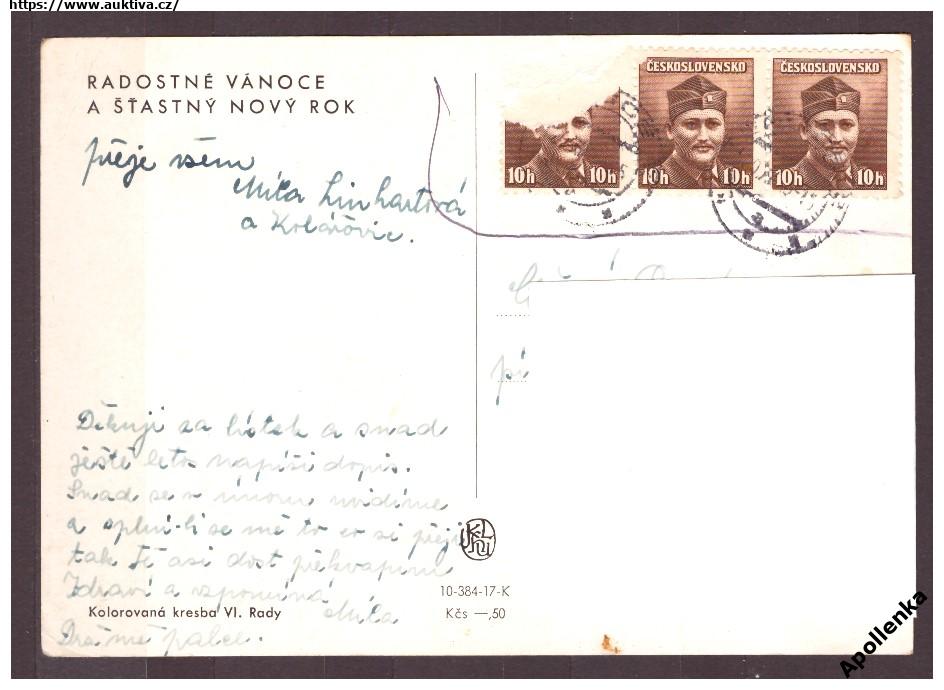 https://www.auktiva.cz/
RADOSTNÉ VÁNOCE
A ŠŤASTNÝ NOVÝ ROK
přeje všem
Míla Linhartová
a Kolářovic.
ČESKOSLOVENSKO
ČESKOSLOVENSKO
10h 10h
10h 10h
10h 10h
Děkuji za lístek a snad
ještě letos napíši dopis.
Snad se v únoru uvidíme
a splní-li se mě to co si přeji
tak Tě asi dost překvapím
Zdraví a vzpomíná
Míla
Drž mě palce.
Kolorovaná kresba Vl. Rady
10-384-17-K
Kčs —,50
Apollenka